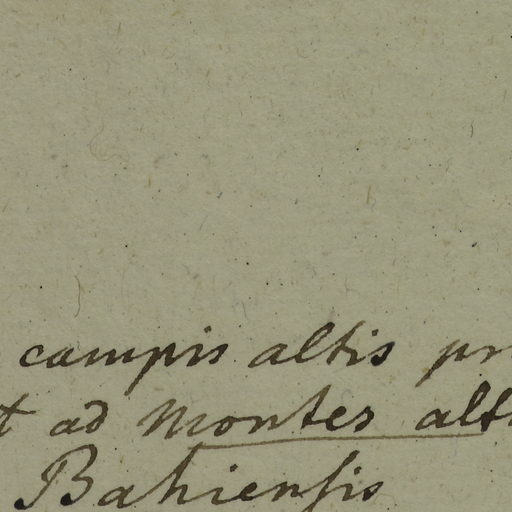 campis altis
ad montes
Bahiensis